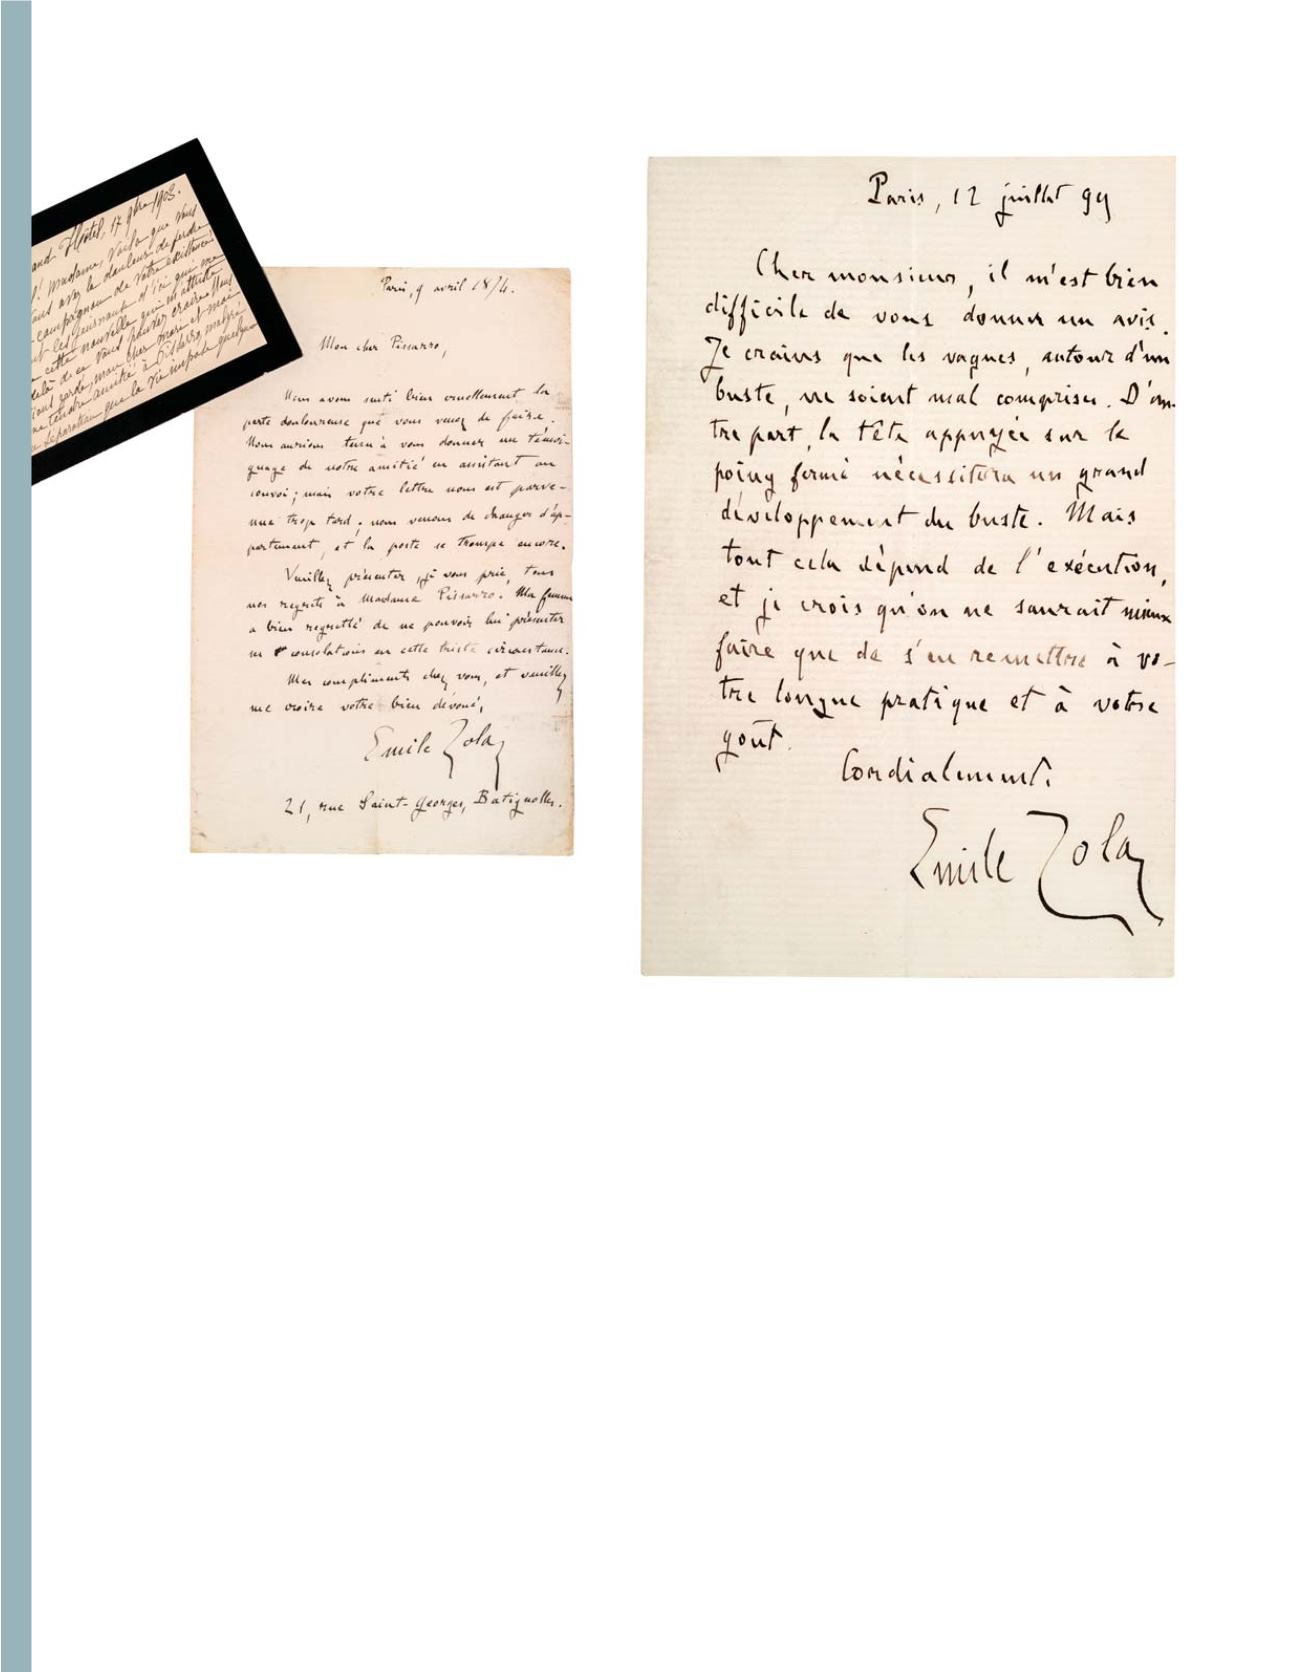 and Hôtel, 17 9bre 1903.
Madame, Voilà que vous
avez la douleur de perdre
compagnon de votre existence
cette nouvelle qui m'attriste
delà de ce que vous pouvez croire. Nous
gardé, mon cher mari et moi
tendre amitié à Pissarro, malgré
séparation que la vie impose quelque
Paris, 9 avril 1874.
Mon cher Pissarro,
Nous avons senti bien cruellement la
perte douloureuse que vous venez de faire.
Nous aurions tenu à vous donner un témoi-
gnage de notre amitié en assistant au
convoi ; mais votre lettre nous est parve-
nue trop tard ; nous venons de changer d'ap-
partement, et la poste se trompe encore.
Veuillez présenter, je vous prie, tous
nos regrets à Madame Pissarro. Ma femme
a bien regretté de ne pouvoir lui présenter
ses consolations en cette triste circonstance.
Mes compliments chez vous, et veuillez
me croire votre bien dévoué,
Emile Zola
21, rue Saint-Georges, Batignolles.
Paris, 12 juillet 99
Cher monsieur, il m'est bien
difficile de vous donner un avis.
Je crains que les vagues, autour d'un
buste, ne soient mal comprises. D'au-
tre part, la tête appuyée sur le
poing fermé nécessitera un grand
développement du buste. Mais
tout cela dépend de l'exécution,
et je crois qu'on ne saurait mieux
faire que de s'en remettre à vo-
tre longue pratique et à votre
goût.
Cordialement.
Emile Zola